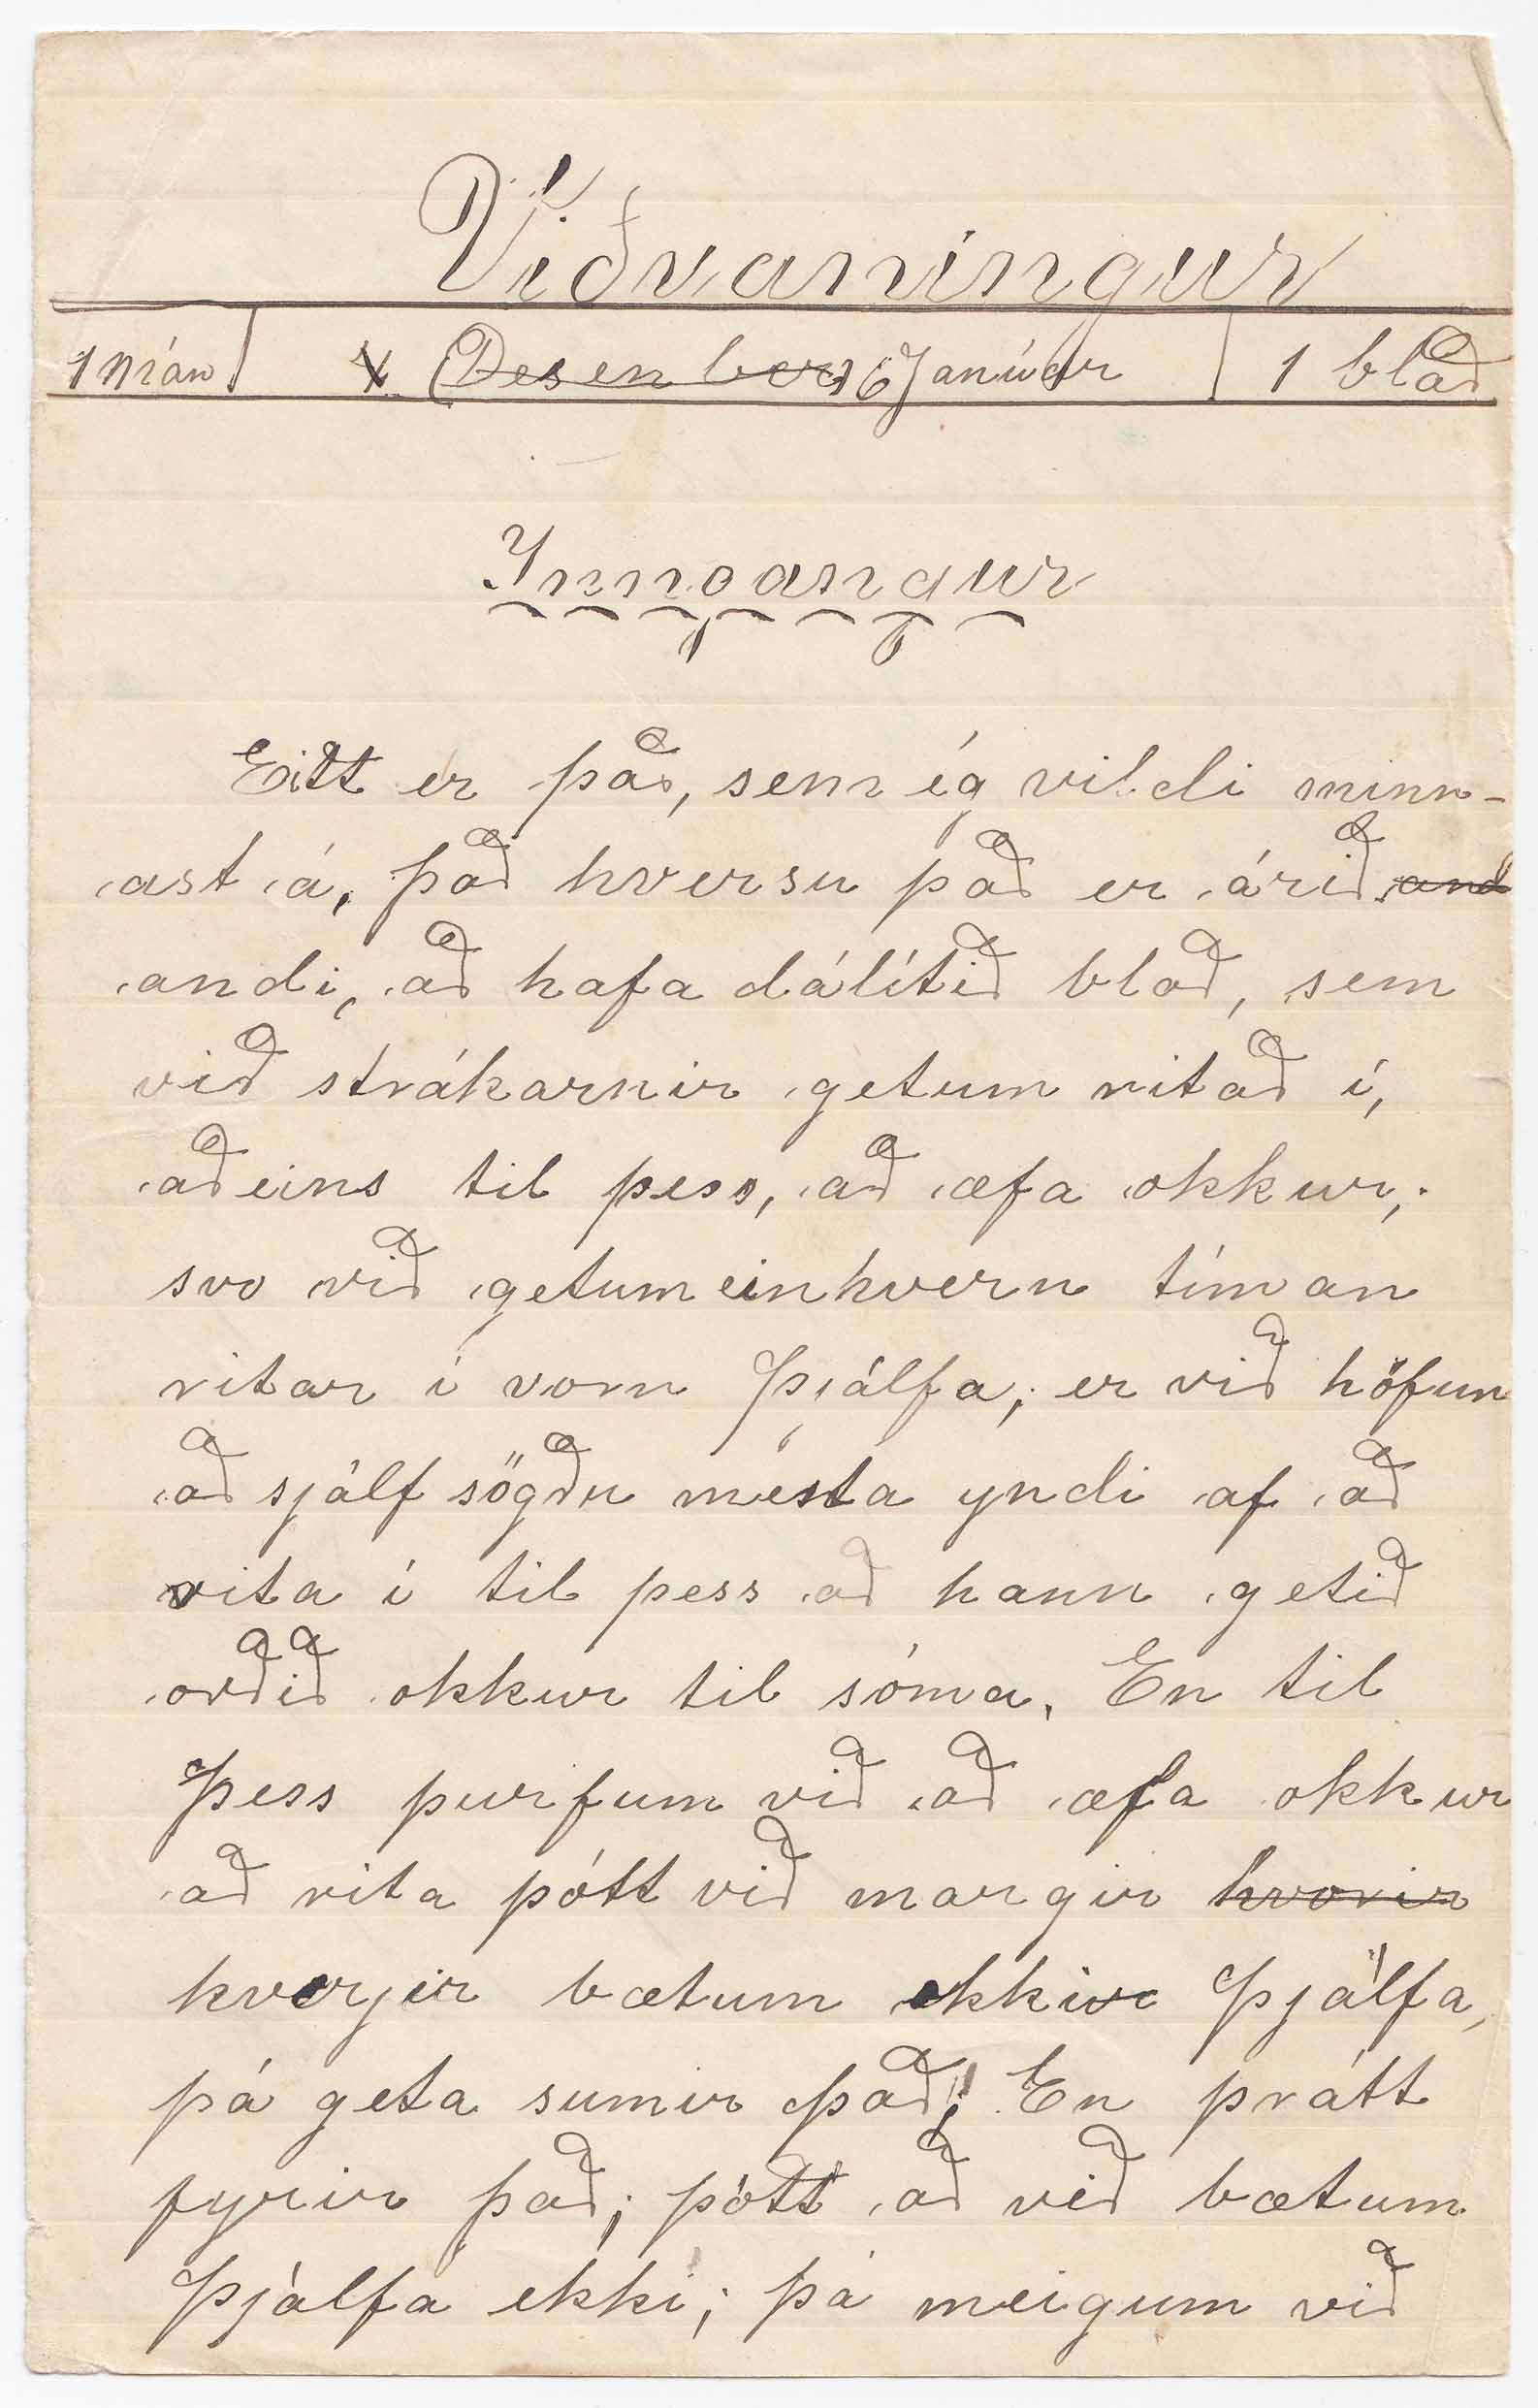 Viðvaningur
1 mán 4. Desenber 6 Janúar 1 blað
Inngangur
Eitt er það, sem ég vildi minn-
ast á, það hversu það er árið and
andi, að hafa dálítið blað, sem
við strákarnir getum ritað í,
aðeins til þess, að æfa okkur,
svo við getum einhvern tíman
ritar í vorn Þjálfa, er við höfun
að sjálfsögðu mesta yndi af að
rita í til þess að hann getið
orðið okkur til sóma. En til
þess þurfum við að æfa okkur
að rita þótt við margir hvorir
hvergir bætum ekkir Þjálfa,
þá geta sumir það! En þrátt
fyrir það; þótt að við bætum
Þjálfa ekki; þá meigum við